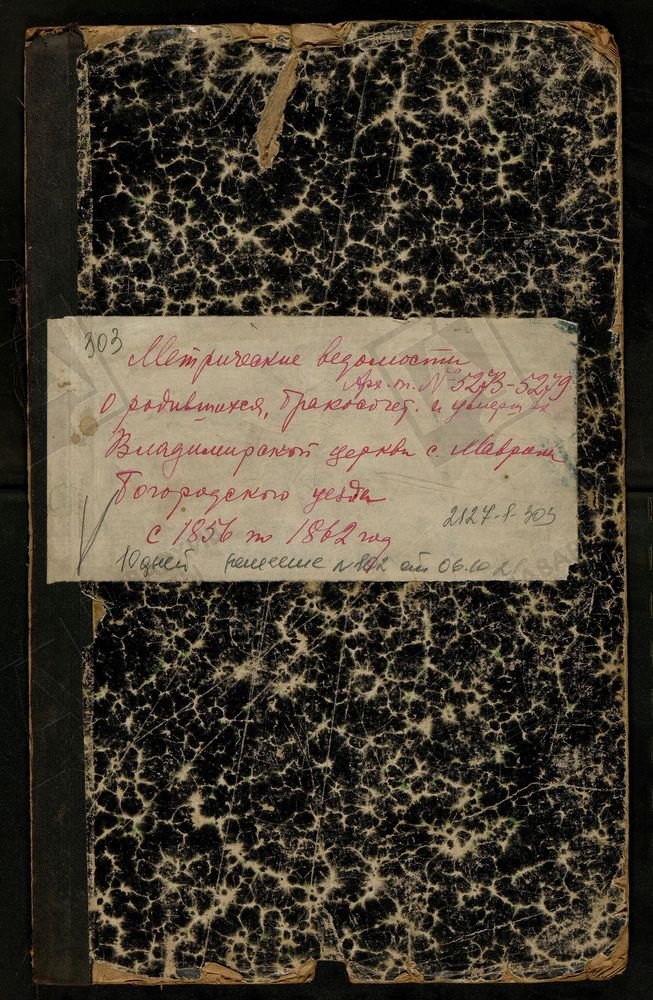 303
Метрические ведомости
Арх. №5273-5279
о родившихся, бракосочет. и умерших
Владимирской церкви с. Маврина
Богородского уезда
с 1856 по 1862 год
2127-1-303
10 дней решение № от 06.10